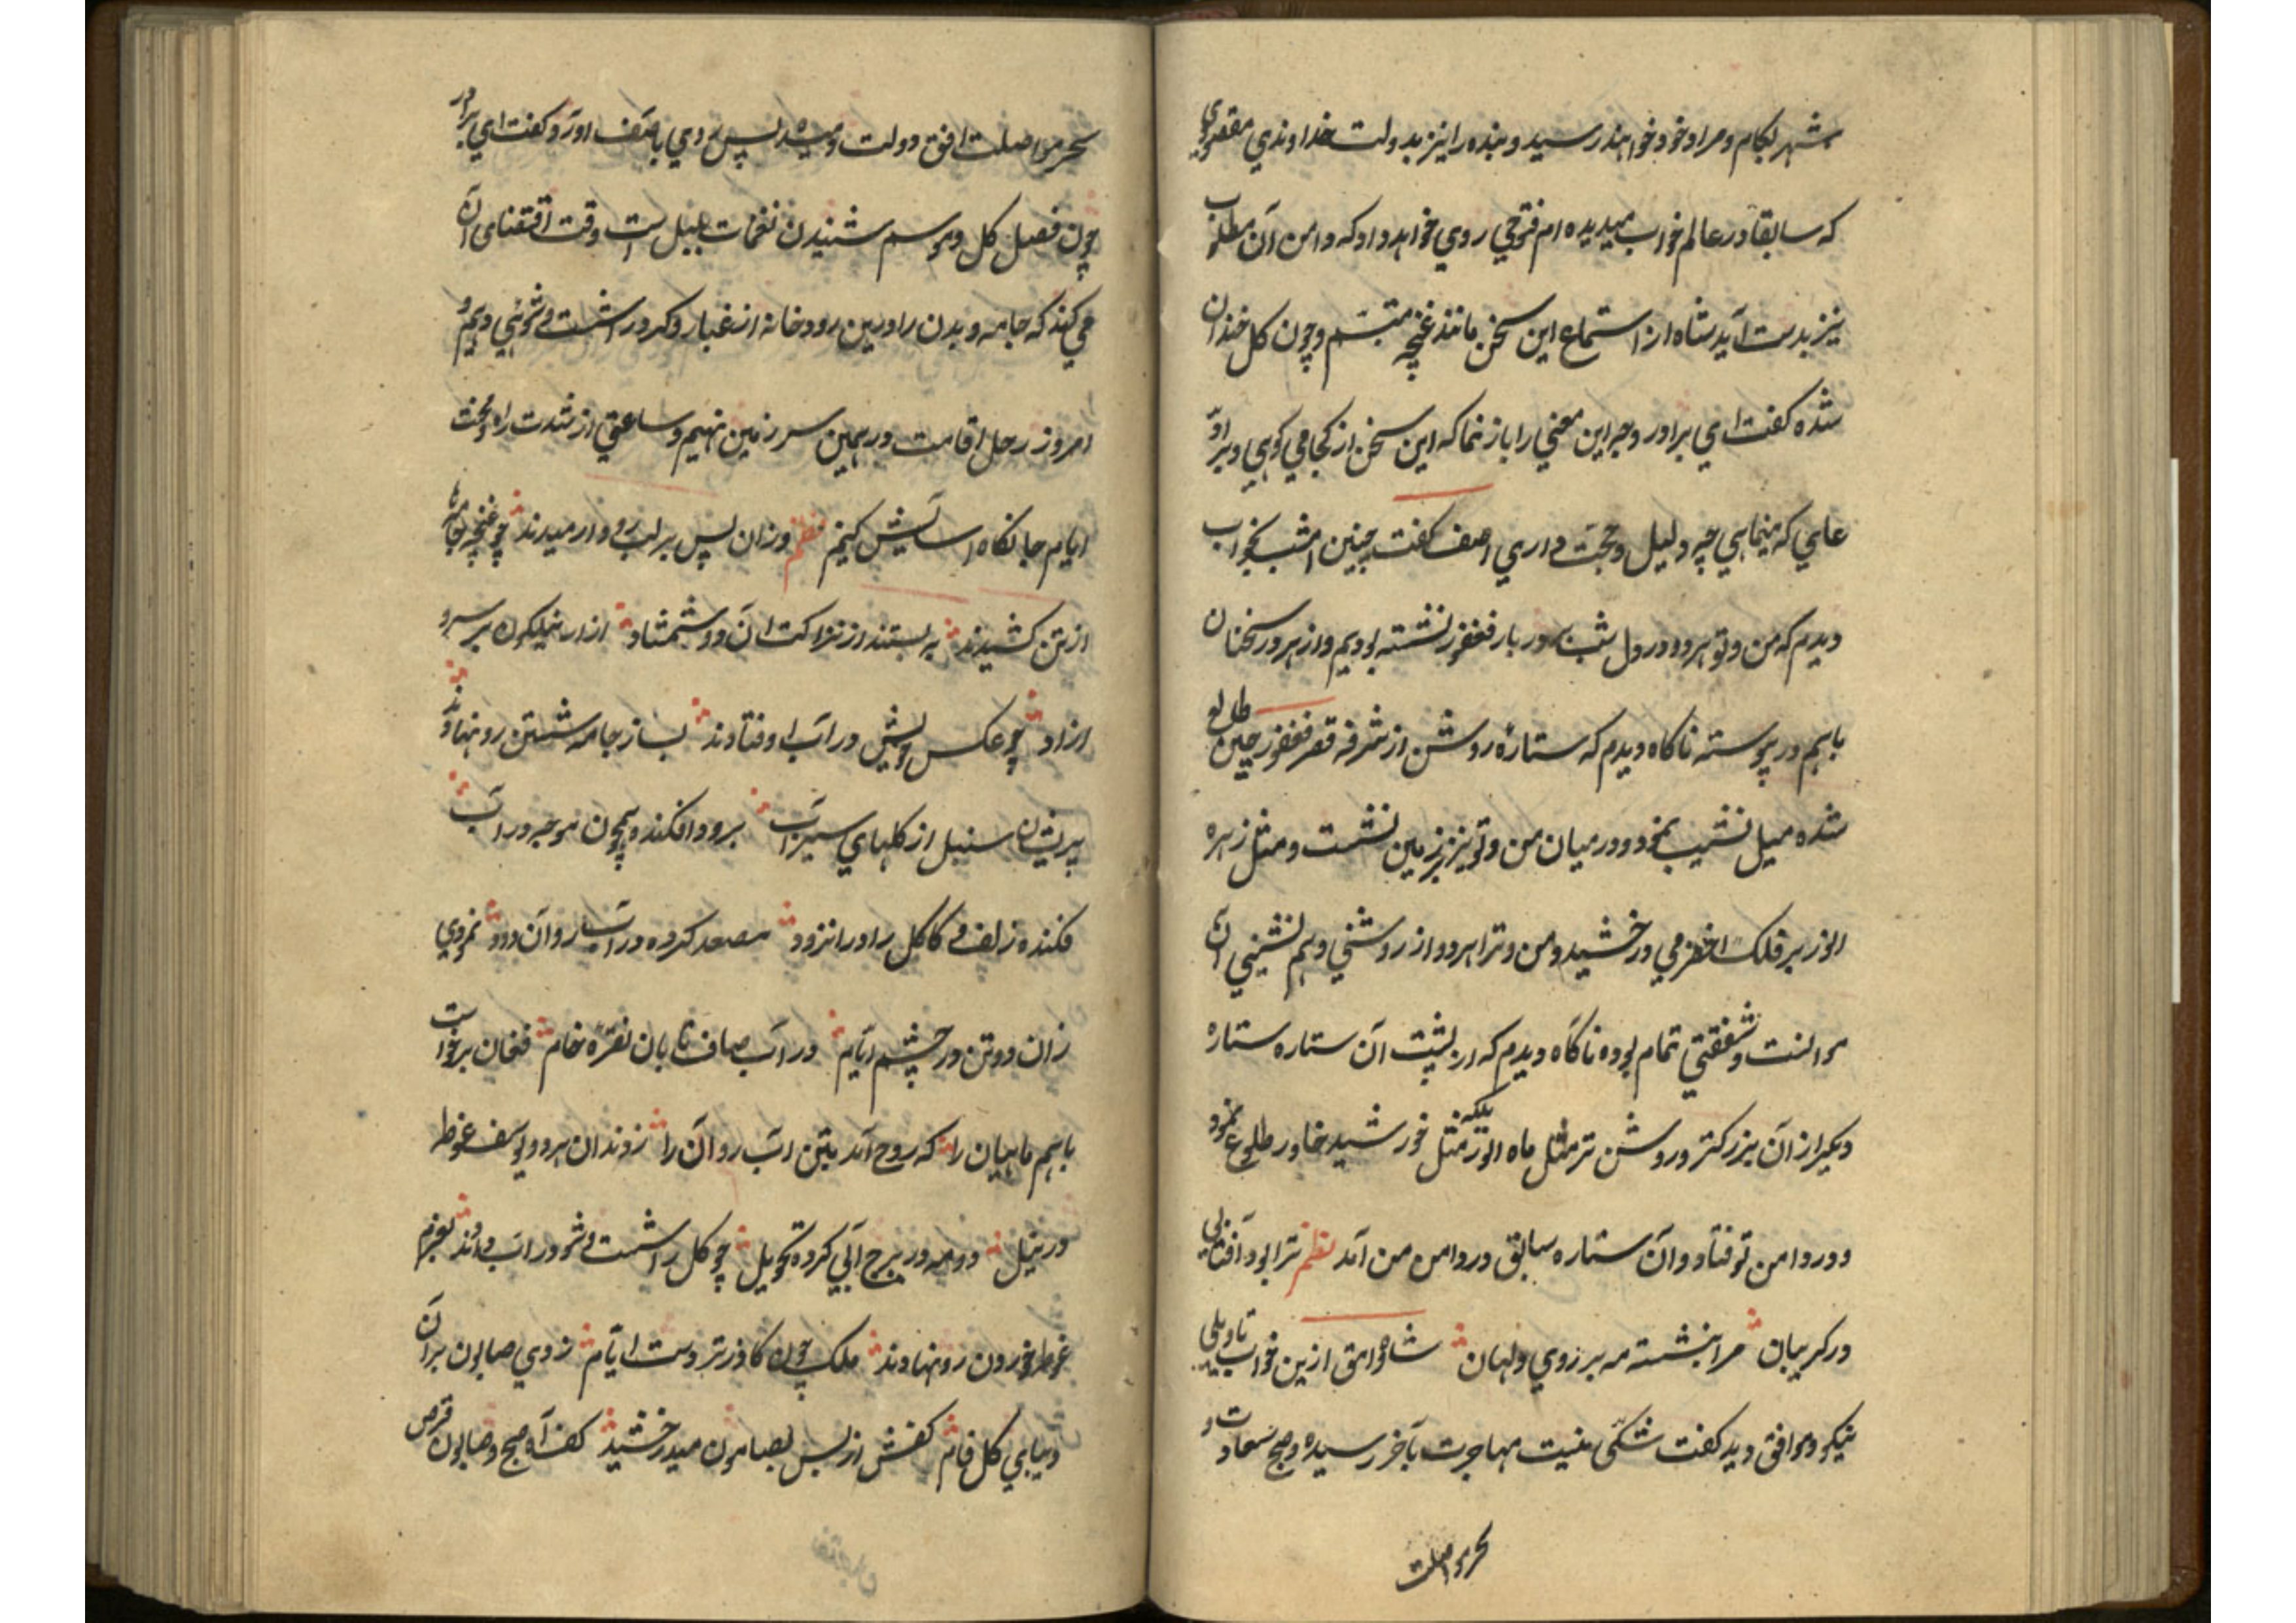 شهر بکام و مراد خود خواهند رسید و بنده را نیز بدولت خداوندی مقصودی
که سابقاً در عالم خواب میدیده ام فتوحی روی خواهد داد که دامن آن مطلوب
نیز بدست آید شاه از استماع این سخن مانند غنچه متبسم و چون گل خندان
شده گفت ای برادر وجه این معنی را باز نما که این سخن از کجا می گویی و برآوَر
که مینمایی چه دلیل و حجت داری اصف گفت چنین امشب بخواب
دیدم که من و تو هر دو در دل شب بر در بار فغفور نشسته بودیم و از هر در سخنان
باهم در پیوسته ناگاه دیدم که ستارهٔ روشن از شرفه قصر فغفور چین طالع
شده میل نشیب نمود و در میان من و تو نیز بزمین نشست و مثل زهره
انور بر فلک اخضر می درخشید و من و ترا هر دو از روشنی و هم نشینی آن
موانست و شفقتی تمام بوده ناگاه دیدم که از پشت آن ستاره ستاره
دیگر از آن بزرکتر و روشن تر مثل ماه انور بلکه مثل خورشید خاور طلوع نمود
و در دامن تو فتاد و آن ستاره سابق در دامن من آمد نظم ترا بود آفتابی
در گریبان مرا بنشسته مه بر روی دامان شاه از این خواب تاویلی
نیکو و موافق دید گفت مهاجرت بآخر رسیده و صبح سعادت و
سحر مواصلت
سحر مواصلت افق دولت دمید پس روی باصف اورد و گفت ای برادر
چون فصل گل و موسم شنیدن نغمات بلبل است وقت اقتضای آن
می کند که جامه و بدن را درین رودخانه از غبار و کدورات شست و شوئی دهیم و
امروز رحل اقامت در همین سرزمین نهیم و ساعتی از شدت راه و محنت
ایام جانکاه اسایش کنیم نظم وزان پس بر لب رود ارمیدند چو غنچه جامها
از تن کشیدند به بستند از نزاکت آن دو شمشاد ازار نیلکون بر سرو
ازاد چو عکس خویش در آب اوفتادند بساز جامه شستن رو نهادند
پریشان سنبل از کلهای سیراب برود افکنده همچون موجه در آب
فکنده زلف و کاکل را در ان رود کرده در آب روان دود نمودی
زان دو تن در چشم ایام در آب صاف تابان نقره خام فغان برخواست
باهم ماهیان را که روح آمد بتن اب روان را زدند ان هر دو یوسف غوطه
در نیل دو مه در برج آبی کرده تحویل چو کل را شست و شو در اب دادند بعزم
غوطه خوردن رو نهادند ملک چون کاذر تر دست ایام زدی صابون بر آن
دیبای کل فام کفش از بس بصابون میدرخشید کف آه صبح و صابون قرص